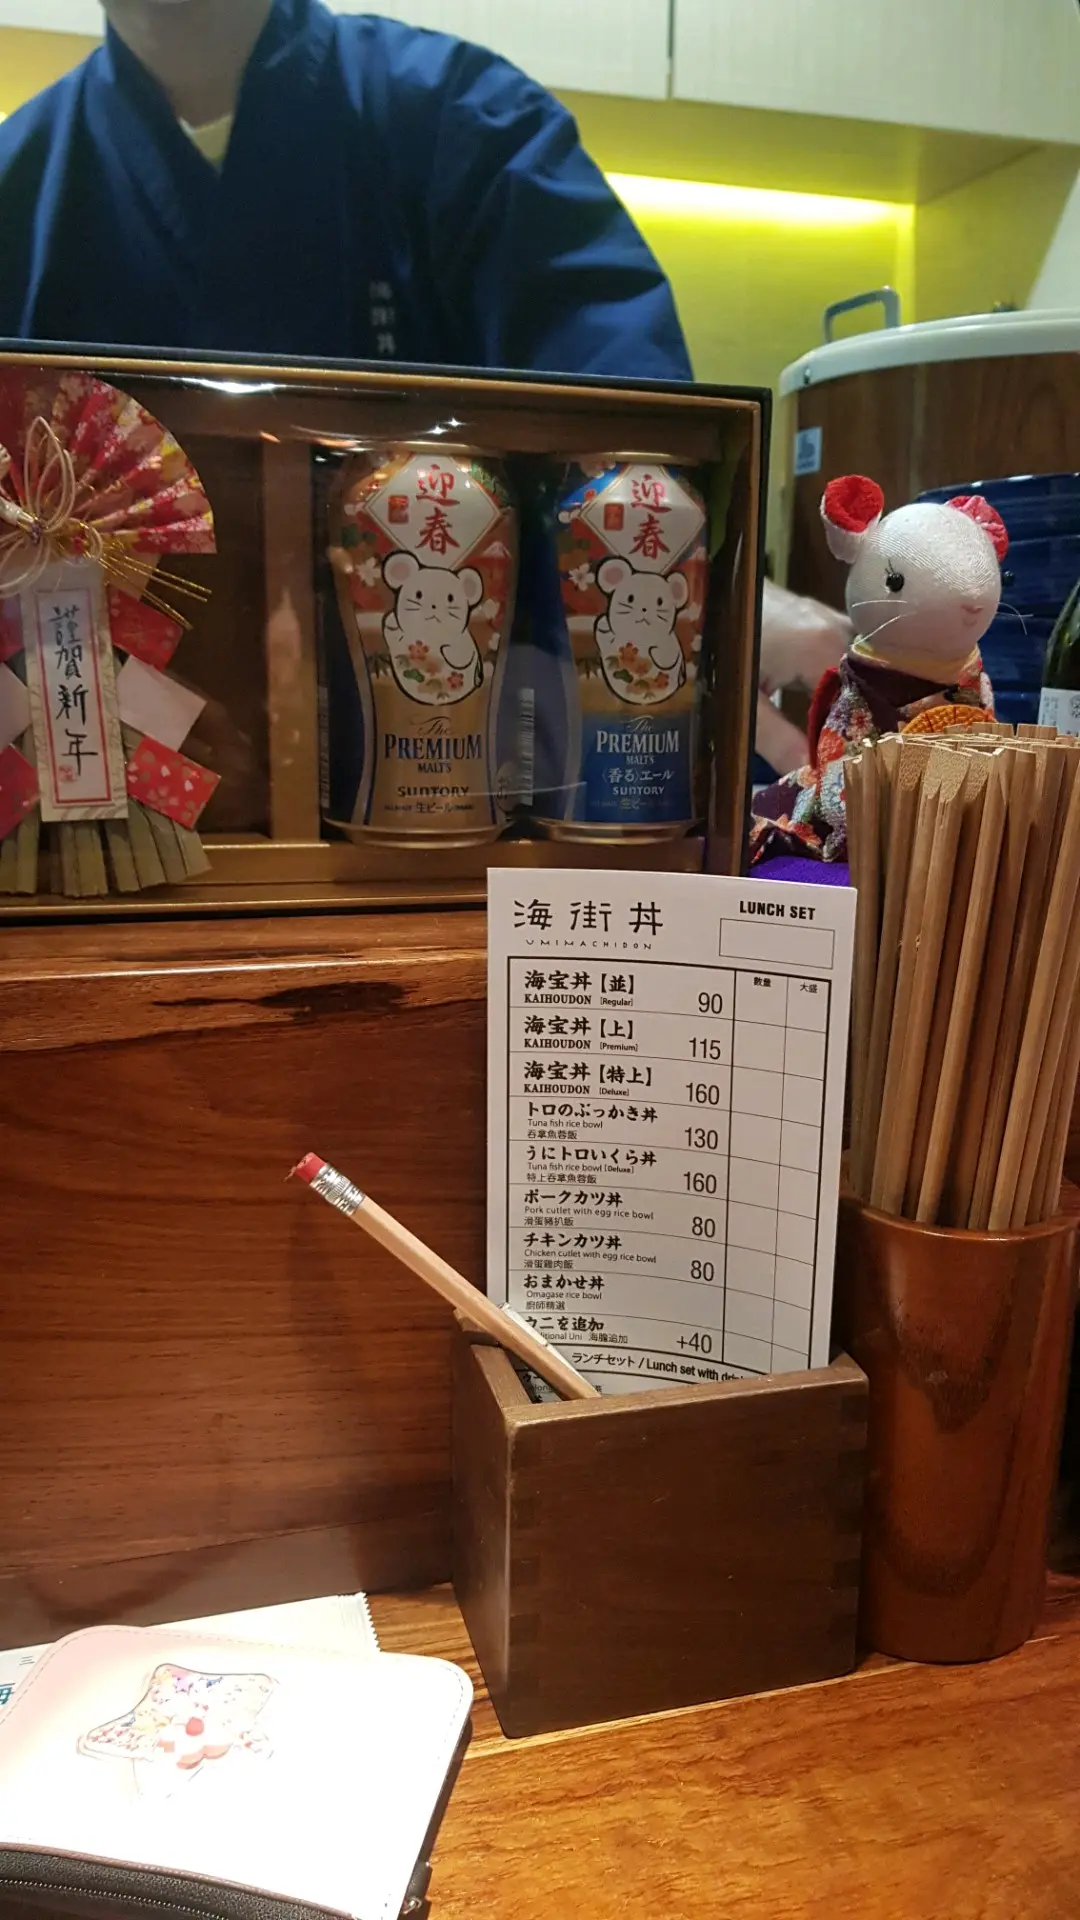 謹賀新年
迎春
The
PREMIUM
MALT'S
SUNTORY
生ビール
迎春
The
PREMIUM
MALT'S
〈香る〉エール
SUNTORY
生ビール
海街丼
UMIMACHIDON
LUNCH SET
数量 大盛
海宝丼【並】
KAIHOUDON [Regular] 90
海宝丼【上】
KAIHOUDON [Premium] 115
海宝丼【特上】
KAIHOUDON [Deluxe] 160
トロのぶっかき丼
Tuna fish rice bowl
吞拿魚蓉飯 130
うにトロいくら丼
Tuna fish rice bowl [Deluxe]
特上吞拿魚蓉飯 160
ポークカツ丼
Pork cutlet with egg rice bowl
滑蛋豬扒飯 80
チキンカツ丼
Chicken cutlet with egg rice bowl
滑蛋雞肉飯 80
おまかせ丼
Omagase rice bowl
廚師精選
ウニを追加
ditional Uni 海膽追加 +40
ランチセット / Lunch set with dri